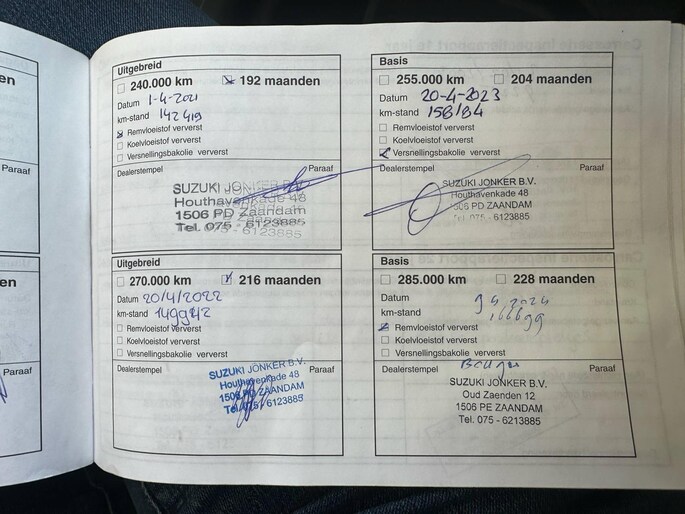 en
Paraaf
Paraaf
Uitgebreid
240.000 km 192 maanden
Datum 1-4-2021
km-stand 142419
Remvloeistof ververst
Koelvloeistof ververst
Versnellingsbakolie ververst
Dealerstempel Paraaf
SUZUKI JONKER B.V.
Houthavenkade 48
1506 PD Zaandam
Tel. 075 - 6123885
Basis
255.000 km 204 maanden
Datum 20-4-2023
km-stand 158184
Remvloeistof ververst
Koelvloeistof ververst
Versnellingsbakolie ververst
Dealerstempel Paraaf
SUZUKI JONKER B.V.
Houthavenkade 48
1506 PD ZAANDAM
Tel. 075 - 6123885
Uitgebreid
270.000 km 216 maanden
Datum 20/4/2022
km-stand 149942
Remvloeistof ververst
Koelvloeistof ververst
Versnellingsbakolie ververst
Dealerstempel Paraaf
SUZUKI JONKER B.V.
Houthavenkade 48
1506 PD ZAANDAM
Tel. 075 - 6123885
Basis
285.000 km 228 maanden
Datum 9 4 2024
km-stand 166699
Remvloeistof ververst
Koelvloeistof ververst
Versnellingsbakolie ververst
Dealerstempel Paraaf
SUZUKI JONKER B.V.
Oud Zaenden 12
1506 PE ZAANDAM
Tel. 075 - 6213885